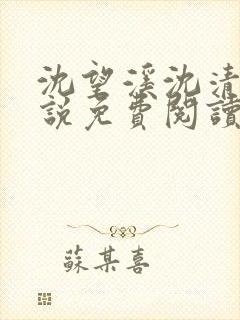 沈望溪沈清
說免費閱讀
蘇某喜